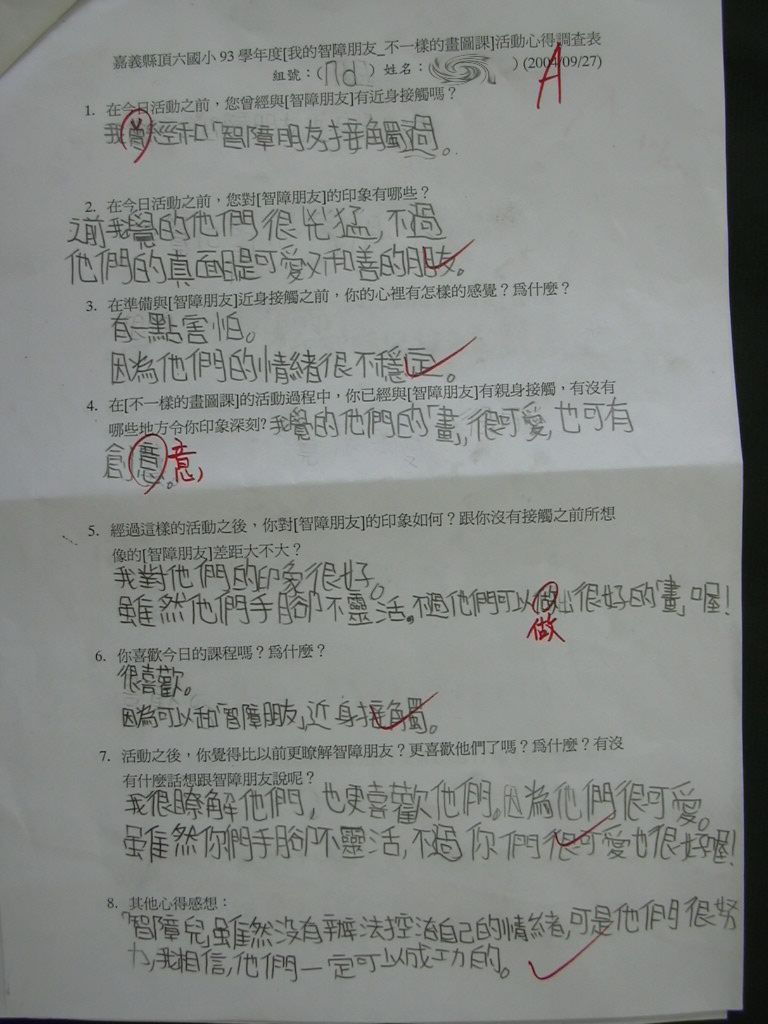 嘉義縣頂六國小 93 學年度[我的智障朋友_不一樣的畫圖課]活動心得調查表
組號：( ) 姓名： ) (2004/09/27)
A
1. 在今日活動之前，您曾經與[智障朋友]有近身接觸嗎？
我曾經和「智障朋友接觸過。
2. 在今日活動之前，您對[智障朋友]的印象有哪些？
之前我覺的他們很兇猛，不過
他們的真面目是可愛又和善的朋友。
3. 在準備與[智障朋友]近身接觸之前，你的心裡有怎樣的感覺？為什麼？
有一點害怕。
因為他們的情緒很不穩定。
4. 在[不一樣的畫圖課]的活動過程中，你已經與[智障朋友]有親身接觸，有沒有
哪些地方令你印象深刻? 我覺的他們的「畫」，很可愛，也可有
創意。意
5. 經過這樣的活動之後，你對[智障朋友]的印象如何？跟你沒有接觸之前所想
像的[智障朋友]差距大不大？
我對他們的印象很好。
雖然他們手腳不靈活，不過他們可以做出很好的「畫」喔！
做
6. 你喜歡今日的課程嗎？為什麼？
很喜歡。
因為可以和「智障朋友」近身接觸。
7. 活動之後，你覺得比以前更瞭解智障朋友？更喜歡他們了嗎？為什麼？有沒
有什麼話想跟智障朋友說呢？
我很瞭解他們，也更喜歡他們。因為他們很可愛。
雖然你們手腳不靈活，不過你們很可愛也很好喔！
8. 其他心得感想：
「智障兒雖然沒有辦法控治自己的情緒，可是他們很努
力，我相信，他們一定可以成功的。